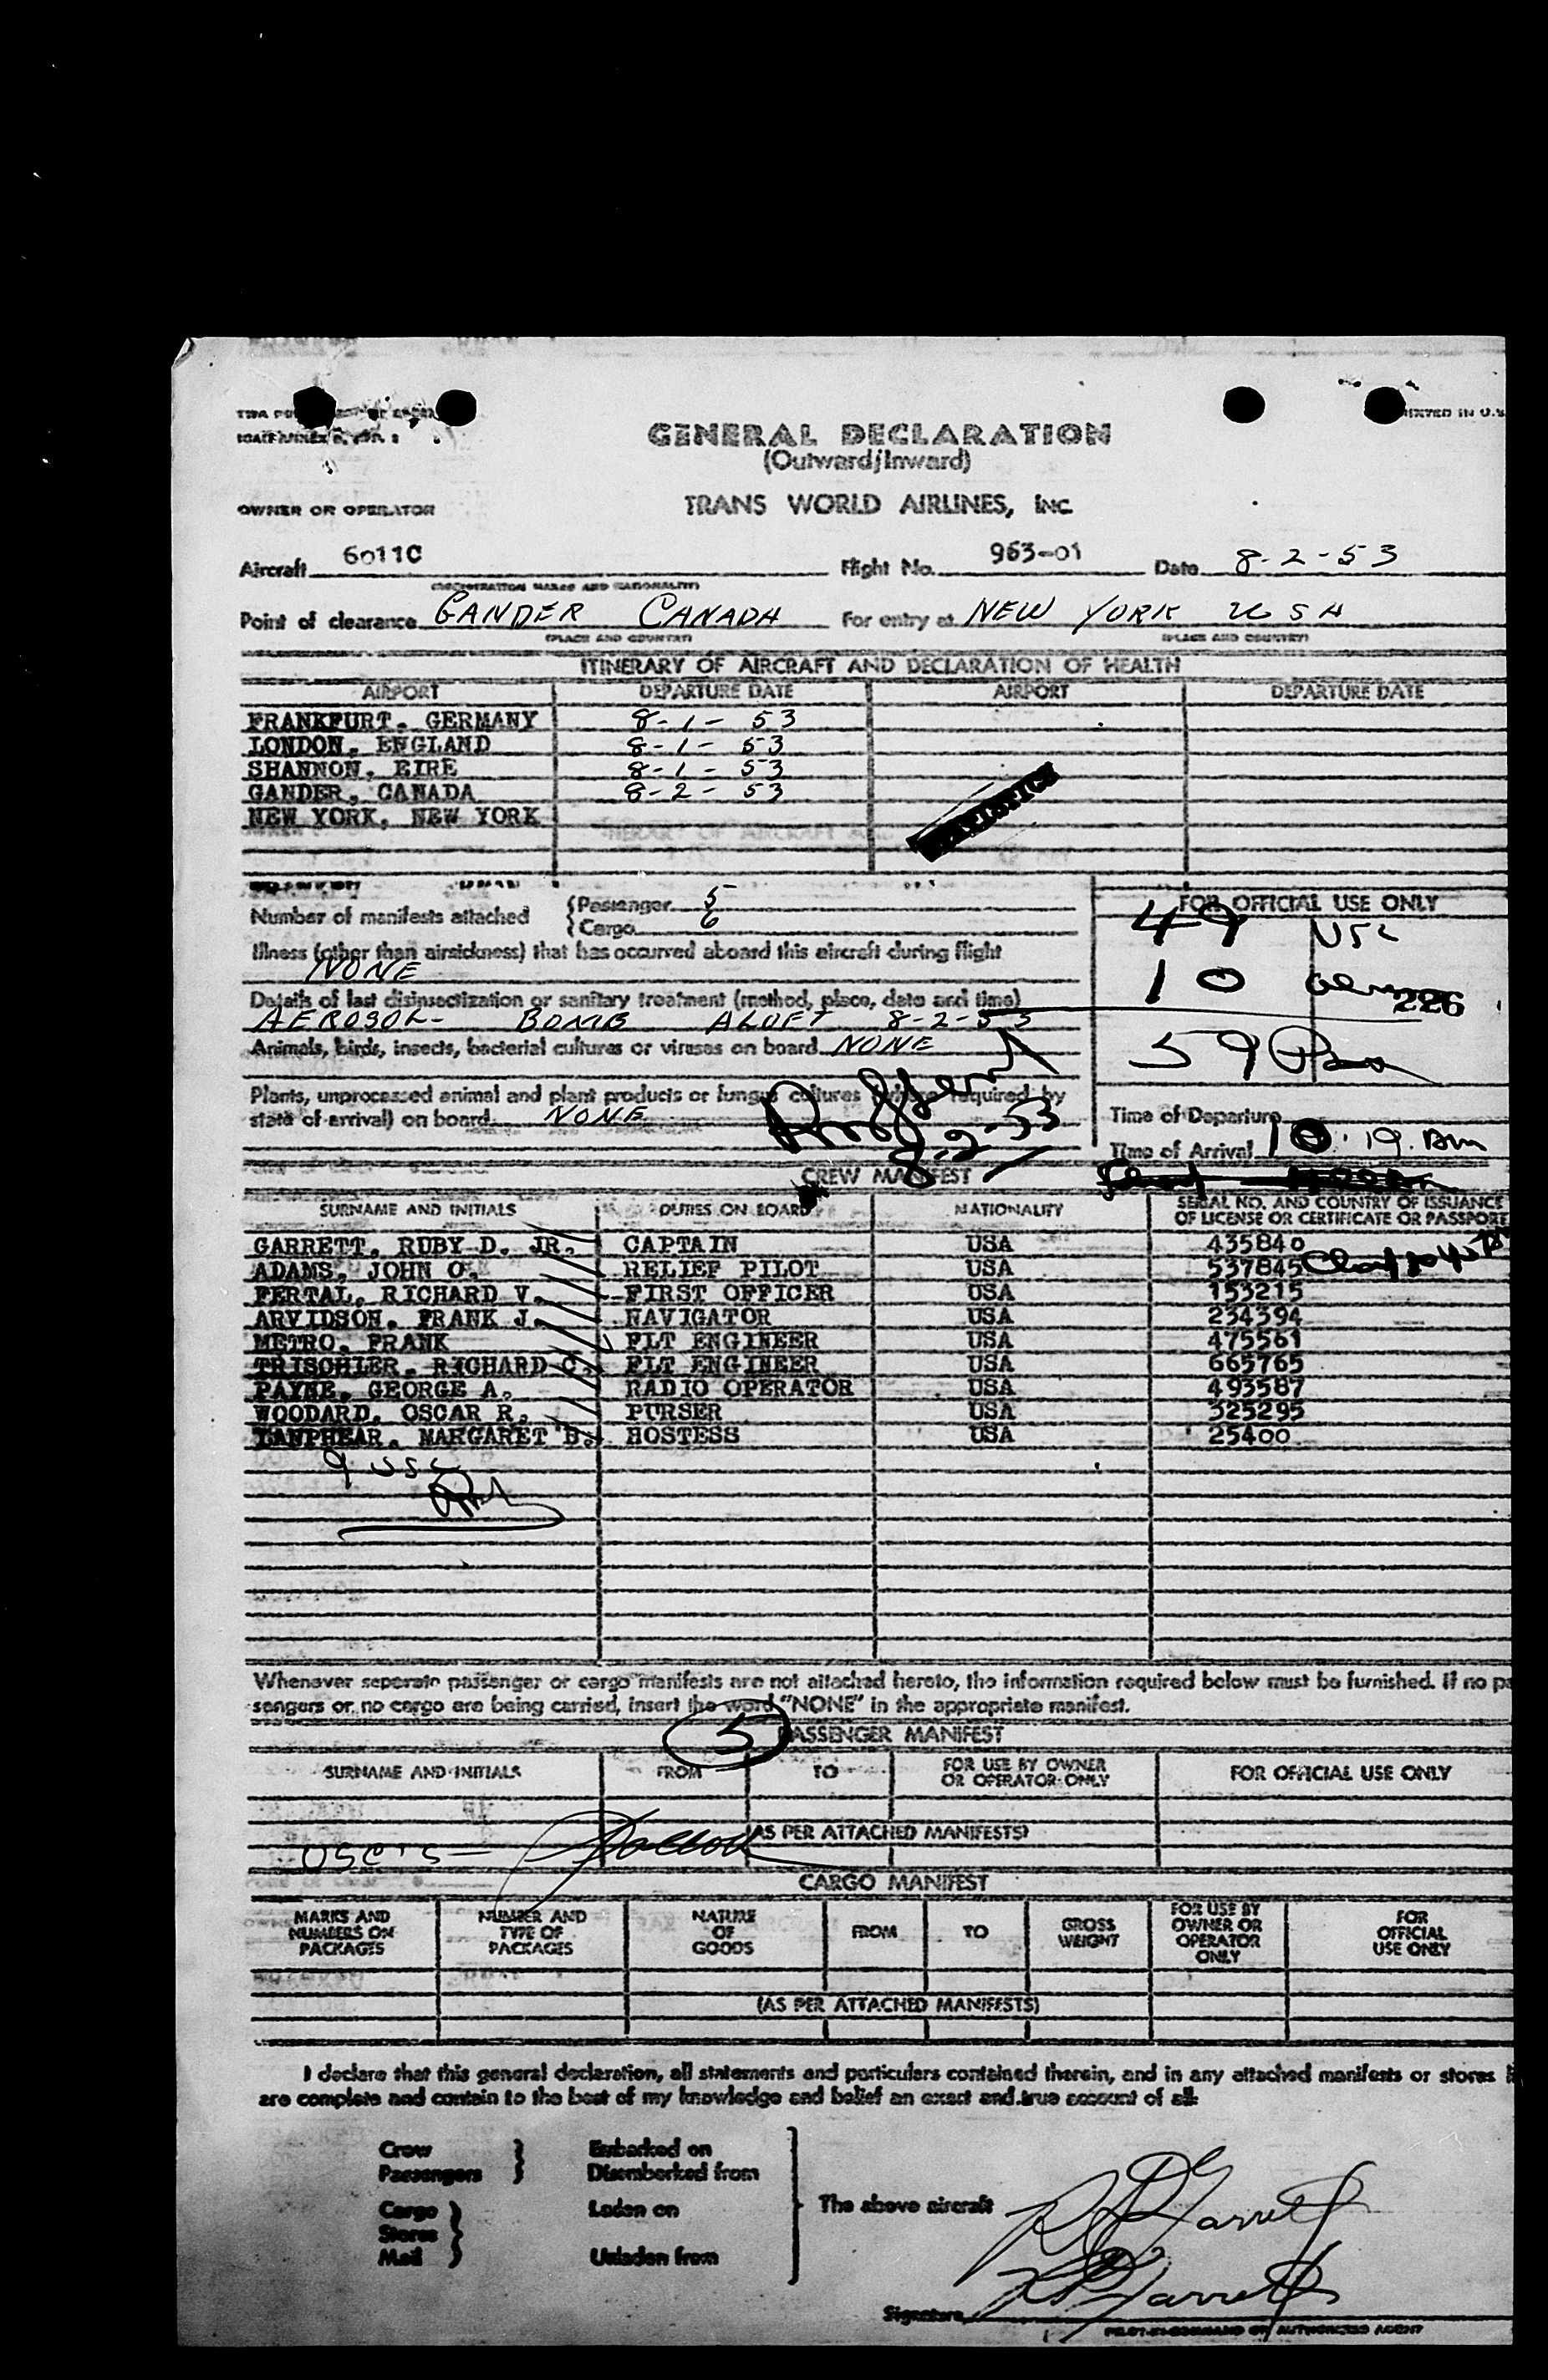 GENERAL DECLARATION
(Outward/Inward)
OWNER OR OPERATOR TRANS WORLD AIRLINES, INC.
Aircraft 6011C Flight No. 963-01 Date 8-2-53
(REGISTRATION MARKS AND NATIONALITY)
Point of clearance GANDER CANADA For entry at NEW YORK USA
(PLACE AND COUNTRY) (PLACE AND COUNTRY)
ITINERARY OF AIRCRAFT AND DECLARATION OF HEALTH
AIRPORT DEPARTURE DATE AIRPORT DEPARTURE DATE
FRANKFURT, GERMANY 8-1-53
LONDON, ENGLAND 8-1-53
SHANNON, EIRE 8-1-53
GANDER, CANADA 8-2-53
NEW YORK, NEW YORK
Number of manifests attached {Passenger 5
{Cargo 6
FOR OFFICIAL USE ONLY
49 USC
10
226
59
Illness (other than airsickness) that has occurred aboard this aircraft during flight
NONE
Details of last disinsectization or sanitary treatment (method, place, date and time)
AEROSOL- BOMB ALOFT 8-2-53
Animals, birds, insects, bacterial cultures or viruses on board NONE
Plants, unprocessed animal and plant products or fungus cultures (where required by
state of arrival) on board NONE
8-2-53
Time of Departure
Time of Arrival 10:19 Am
CREW MANIFEST
SURNAME AND INITIALS DUTIES ON BOARD NATIONALITY SERIAL NO. AND COUNTRY OF ISSUANCE
OF LICENSE OR CERTIFICATE OR PASSPORT
GARRETT, RUBY D. JR. CAPTAIN USA 435840
ADAMS, JOHN O. RELIEF PILOT USA 537845
FERTAL, RICHARD V. FIRST OFFICER USA 153215
ARVIDSON, FRANK J. NAVIGATOR USA 234394
METRO, FRANK FLT ENGINEER USA 475561
TRISCHLER, RICHARD C. FLT ENGINEER USA 665765
PAYNE, GEORGE A. RADIO OPERATOR USA 493587
WOODARD, OSCAR R. PURSER USA 325295
LANPHEAR, MARGARET B. HOSTESS USA 25400
9 USC
Whenever seperate passenger or cargo manifests are not attached hereto, the information required below must be furnished. If no pa
sengers or no cargo are being carried, insert the word "NONE" in the appropriate manifest.
5 PASSENGER MANIFEST
SURNAME AND INITIALS FROM TO FOR USE BY OWNER
OR OPERATOR ONLY FOR OFFICIAL USE ONLY
(AS PER ATTACHED MANIFESTS)
USC'S —
CARGO MANIFEST
MARKS AND
NUMBERS ON
PACKAGES NUMBER AND
TYPE OF
PACKAGES NATURE
OF
GOODS FROM TO GROSS
WEIGHT FOR USE BY
OWNER OR
OPERATOR
ONLY FOR
OFFICIAL
USE ONLY
(AS PER ATTACHED MANIFESTS)
I declare that this general declaration, all statements and particulars contained therein, and in any attached manifests or stores
are complete and contain to the best of my knowledge and belief an exact and true account of all:
Crew } Embarked on
Passengers } Disembarked from
Cargo } Laden on
Stores }
Mail } Unladen from
The above aircraft RD Garrett
Signature RD Garrett
PILOT-IN-COMMAND OR AUTHORIZED AGENT